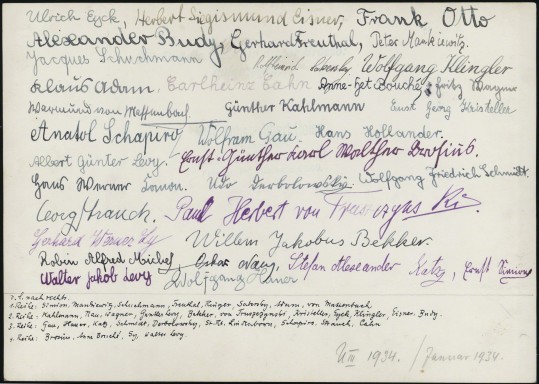 Ulrich Eyck, Herbert Siegismund Eisner, Frank Otto
Alexander Budy, Gerhard Freuthal, Peter Mankiewitz,
Jacques Schuchmann Wolfgang Klingler
Klaus Adam, Carlheinz Cahn Anne-Bet Bouché, Fritz Wagner
Wermund von Maffenbach, Günther Kahlmann Ernst Georg Kristeller
Anatol Schapiro Wolfram Gau, Hans Hollander.
Albert Günter Levy. Ernst-Günther Karl Walther Brosius.
Hans Werner Udo Derbolowsky, Wolfgang Friedrich Schmidt.
Georg Strauch. Paul Herbert von
Gerhard Willem Jakobus Bekker.
Robin Alfred Oskar Stefan Alexander Katz, Ernst Simion
Walter Jakob Levy Wolfgang
v. l. nach rechts.
1. Reihe: Simion, Mankiewitz, Schuchmann, Freuthal, Krüger, Adam, von Massenbach
2. Reihe: Kahlmann, Nau, Wagner, Günther Levy, Bekker, Kristeller, Eyck, Klingler, Eisner, Budy.
3. Reihe: Gau, Katz, Schmidt, Derbolowsky, Schapiro, Strauch, Cahn
4. Reihe: Brosius, Anne Bouché, Walter Levy.
UIII 1934. / Januar 1934.